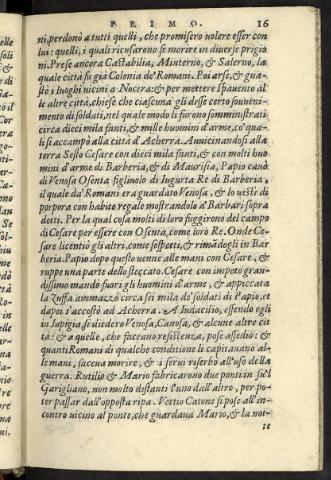 PRIMO. 16
ni, perdonò a tutti quelli, che promisero volere esser con
lui: quelli, i quali ricusarono fe morire in diverse prigio
ni. Prese ancora Castabilia, Minterno, & Salerno, la
quale città fu già Colonia de' Romani. Poi arse, & gua-
stò i luoghi vicini a Nocera: & per mettere spavento al
le altre città, chiese che ciascuna gli desse certo souveni-
mento di soldati, nel quale modo li furono somministrati
circa dieci mila fanti, & mille huomini d'arme, co' qua-
li si accampò alla città d'Acherra. Avvicinandosi alla
terra Sesto Cesare con dieci mila fanti, & con molti huo
mini d'arme di Barberia, & di Maurisia, Papio cavò
di Venosa Osenta figliuolo di Iugurta Re di Barberia,
il quale da' Romani era guardato Venosa, & lo vestì di
porpora con habito regale mostrandolo a' Barbari sopra
detti. Per la qual cosa molti di loro fuggirono del campo
di Cesare per essere con Osenta, come loro Re. Onde Ce-
sare licentiò gli altri, come sospetti, & rimãdogli in Bar
beria. Papio dopo questo venne alle mani con Cesare, &
ruppe una parte dello steccato. Cesare con impeto gran-
dissimo mandò fuori gli huomini d'arme, & appiccata
la zuffa ammazzò circa sei mila de' soldati di Papio, et
dapoi s'accostò ad Acherra. A Iudacilio, essendo egli
in Iapigia si diedero Venosa, Canosa, & alcune altre cit
tà: & a quelle, che faceano resistenza, pose assedio: &
quanti Romani di qualche conditione li capitavano al-
le mani, faceva morire, & i servi riserbò all'uso della
guerra. Rutilio & Mario fabricarono due ponti in su'l
Garigliano, non molto distanti l'uno dall'altro, per po-
ter passar dall'opposta ripa. Vettio Catone si pose all'in-
contro vicino al ponte, che guardava Mario, & la not-
te